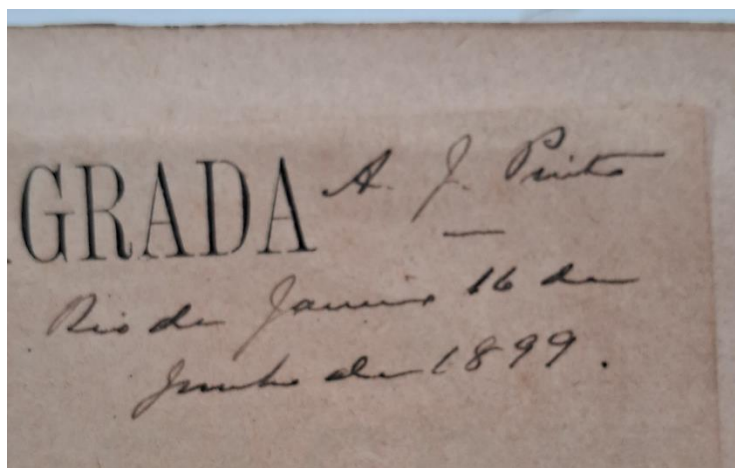 GRADA A. J. Pinto
Rio de Janeiro 16 de
Junho de 1899.